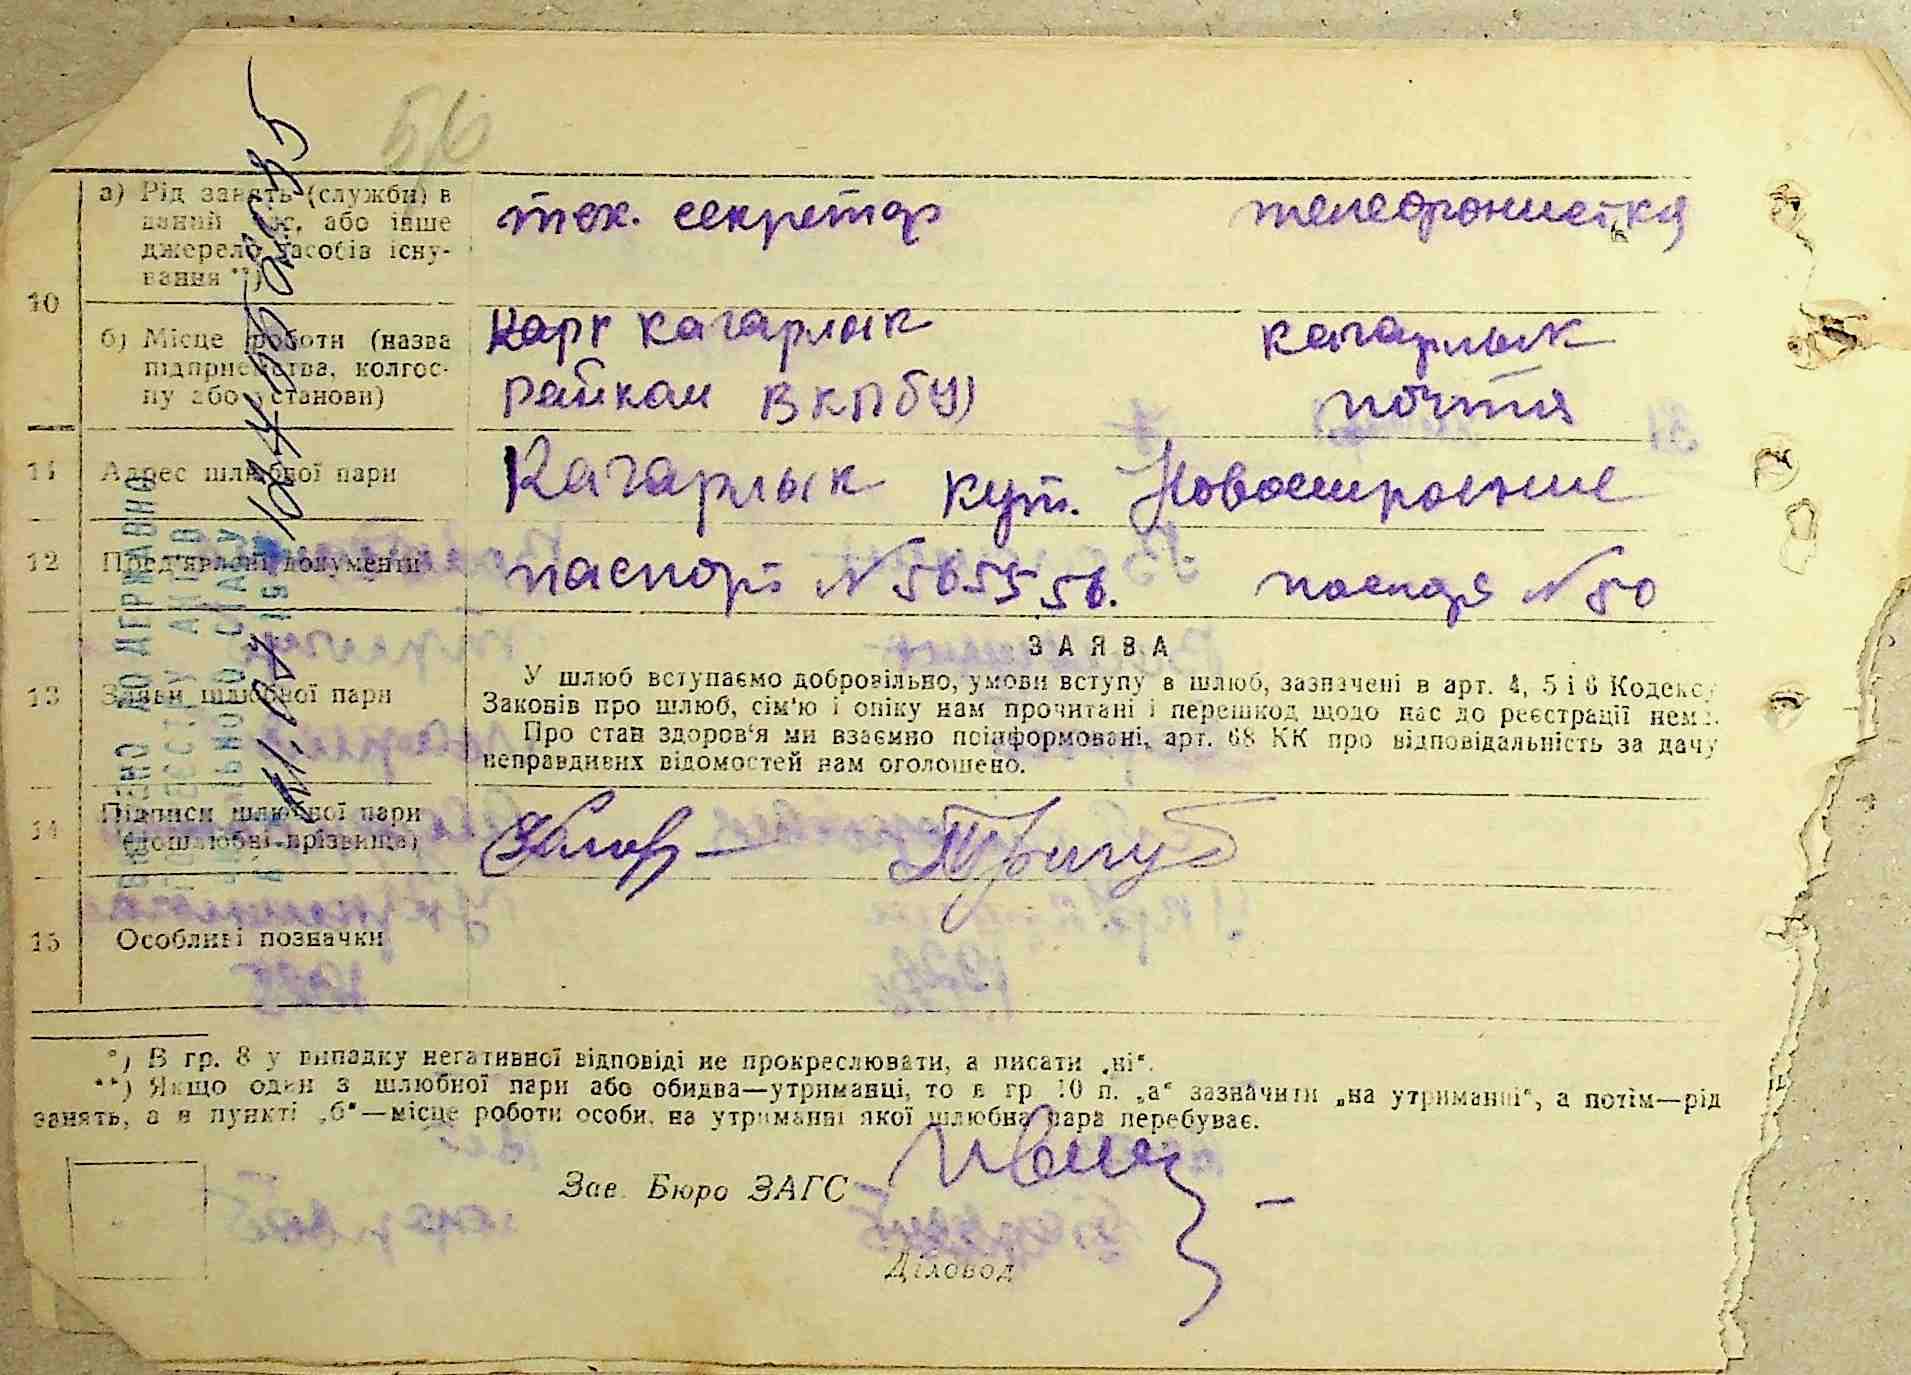 56
10
а) Рід занять (службн) в
даний час, або інше
джерело засобів існу-
вання **)
тех. секретар
телефонистка
б) Місце роботи (назва
підприємства, колгос-
пу або установи)
Кагарлык
Райком ВКПбУ)
Кагарлык
почта
11
Адрес шлюбної пари
Кагарлык кут.
12
Пред'явлені документи
паспорт N 565556.
N 80
13
Заяви шлюбної пари
ЗАЯВА
У шлюб вступаємо добровільно, умови вступу в шлюб, зазначені в арт. 4, 5 і 6 Кодексу
Законів про шлюб, сім'ю і опіку нам прочитані і перешкод щодо нас до реєстрації нема.
Про стан здоров'я ми взаємно поінформовані, арт. 68 КК про відповідальність за дачу
неправдивих відомостей нам оголошено.
14
Підписи шлюбної пари
(дошлюбні прізвища)
Тригуб
15
Особливі позначки
*) В гр. 8 у випадку негативної відповіді не прокреслювати, а писати „ні".
**) Якщо один з шлюбної пари або обидва—утриманці, то в гр. 10 п. „а" зазначити „на утриманні", а потім—рід
занять, а в пункті „б"—місце роботи особи, на утриманні якої шлюбна пара перебуває.
Зав. Бюро ЗАГС
Діловод